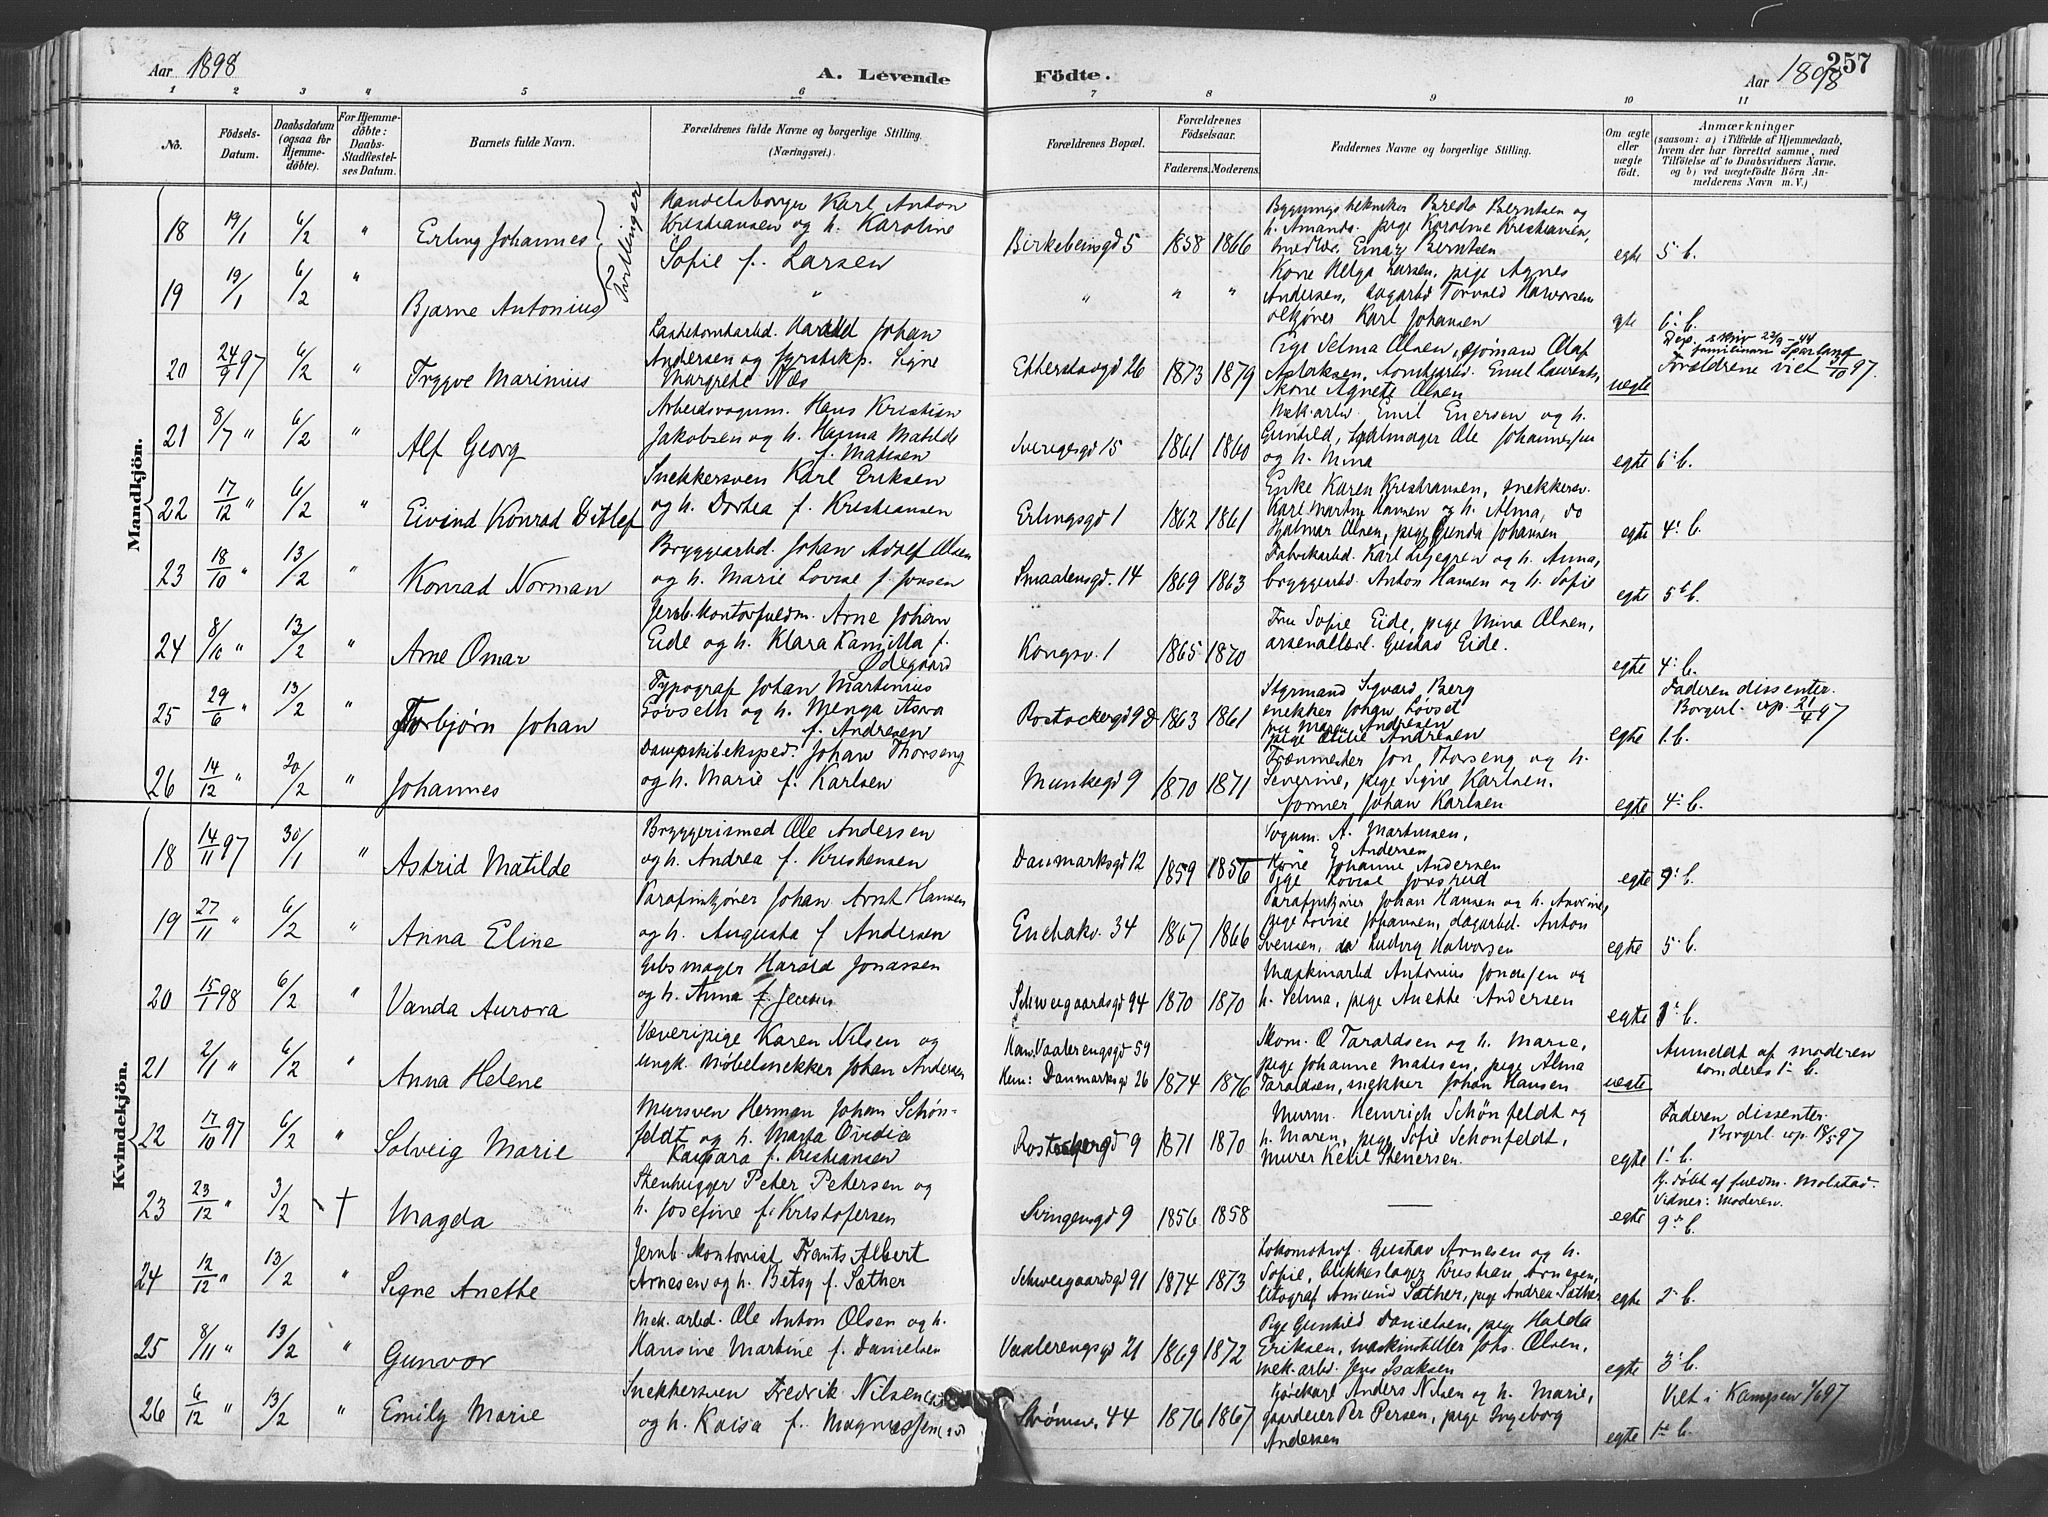 Aar 1898
A. Levende
Födte.
Aar 1898
257
1 2 3 4 5 6 7 8 9 10 11
No.
Födsels-Datum.
Daabsdatum (ogsaa for Hjemme-döbte).
For Hjemme-döbte: Daabs-Stadfæstel-ses Datum.
Barnets fulde Navn.
Forældrenes fulde Navne og borgerlige Stilling. (Næringsvei.)
Forældrenes Bopæl.
Forældrenes Födselsaar.
Faderens. Moderens.
Faddernes Navne og borgerlige Stilling.
Om ægte eller uægte födt.
Anmærkninger
(saasom: a) i Tilfælde af Hjemmedaab, hvem der har forrettet samme, med Tilföielse af to Daabsvidners Navne, og b) ved uægtefödte Börn An-melderens Navn m. V.)
Mandkjön.
18 19/1 6/2 " Erling Johannes
Tvillinger
Handelsborger Karl Anton
Kristiansen og h. Karoline
Sofie f. Larsen
Birkebeinsgd 5 1858 1866
Bygningstekniker Bredo Berntsen og
h. Amanda, pige Karoline Kristiansen,
Berntsen
egte 5 b.
19 19/1 6/2 " Bjarne Antonius
"
" " "
Kone Helga Larsen, pige Agnes
Andersen, dagarbd Torvald Halvorsen
ølkjører Karl Johansen
egte 6. b.
20 24/9 97 6/2 " Trygve Marinius
Harald Johan
Andersen og Signe
Margrete Næs
Etterstadgd 26 1873 1879
Pige Selma Olsen, sjömand Olaf
Aslaksen, Emil Laurents,
Kone Agnete Olsen
uegte
familienavn Sparland
Forældrene viet 3/10 97.
21 8/7 " 6/2 " Alf Georg
Arbeidsvognm. Hans Kristian
Jakobsen og h. Hanna Matilde
f. Madsen
Sverresgd 15 1861 1860
Mek. arb. Emil Enersen og h.
Gunhild, Ole Johannessen
og h. Mina
egte 6. b.
22 17/12 " 6/2 " Eivind Konrad Ditlef
Snekkersven Karl Eriksen
og h. Dortea f. Kristiansen
Erlingsgd 1 1862 1861
Enke Karen Kristiansen, snekkersv.
Karl Martin Hansen og h. Alma, do
Hjalmar Olsen, pige Gunda Johansen
egte 4. b.
23 18/10 " 13/2 " Konrad Norman
Bryggearbd. Johan Adolf Olsen
og h. Marie Lovise f. Jonsen
Smaalensgd. 14 1869 1863
Fabrikarbd. Karl Liljegren og h. Anna,
bryggearbd Anton Hansen og h. Sofie
egte 5 b.
24 8/10 " 13/2 " Arne Omar
Jernb. kontorfuldm. Arne Johan
Eide og h. Klara Kamilla f.
Ødegaard
Kongsv. 1 1865 1870
Fru Sofie Eide, pige Mina Olsen,
arsenalarb. Gustav Eide.
egte 4. b.
25 29/6 " 13/2 " Torbjørn Johan
Typograf Johan Martinius
Løvseth og h. Menga Asora
f. Andresen
Rostockergd 9 d 1863 1861
Styrmand Sigvard Berg
snekker Johan Løvset
fru Maren Andresen
pige Andresen
egte 1. b.
Faderen dissenter.
Borgerl. vp. 21/4 97
26 14/12 " 20/2 " Johannes
Dampskibseksped. Johan Thorseng
og h. Marie f. Karlsen
Munkegd 9 1870 1871
Jon Thorseng og h.
Severine, pige Signe Karlsen,
former Johan Karlsen
egte 4. b.
Kvindekjön.
18 14/11 97 30/1 " Astrid Matilde
Bryggerismed Ole Andersen
og h. Andrea f. Kristensen
Danmarksgd 12 1859 1856
Vognm. A. Martinsen,
E Andersen
Kone Johanne Andersen
Pige Lovise Jonsrud
egte 9. b.
19 27/11 " 6/2 " Anna Eline
Parafinkjører Johan Arnt Hansen
og h. Augusta f. Andersen
Enebakv. 34 1867 1866
Parafinkjører Johan Hansen og h. Anorine,
pige Lovise Johansen, dagarbd. Anton
Svensen, do Ludvig Halvorsen
egte 5. b.
20 15/1 98 6/2 " Vanda Aurora
Gibsmager Harald Jonassen
og h. Anna f. Jensen
Schweigaardsgd 94 1870 1870
Maskinarbd Antonius Jonassen og
h. Selma, pige Anette Andersen
egte 1. b.
21 2/1 " 6/2 " Anna Helene
Væveripige Karen Nilsen og
ungk. møbelsnekker Johan Andersen
Han: Vaalerengsgd 59
Hun: Danmarksgd 26 1874 1876
Skom. O. Taraldsen og h. Marie,
pige Johanne Madsen, pige Alma
Taraldsen, snekker Johan Hansen
uegte
Anmeldt af moderen
som deres 1. b.
22 17/10 97 6/2 " Solveig Marie
Mursven Herman Johan Schön-
feldt og h. Marta Ovidia
f. Kristiansen
Rostockergd 9 1871 1870
Murm. Heinrich Schönfeldt og
h. Maren, pige Sofie Schönfeldt,
murer Ketil Stenersen.
egte
Faderen dissenter.
Borgerl. vp. 18/5 97
1. b.
23 23/12 " 3/2 † Magda
Stenhugger Peter Petersen og
h. Josefine f. Kristofersen
Svingensgd 9 1856 1858
—
egte
Hj. døbt af fuldm. Molstad.
Vidner: Moderen.
9. b.
24 12/12 " 13/2 " Signe Anette
Jernb. kontorist Frants Albert
Arnesen og h. Betsy f. Sæther
Schweigaardsgd 91 1874 1873
Lokomotivf. Gustav Arnesen og h.
Sofie, blikkeslager Kristian Arnesen,
litograf Amund Sæther, pige Andrea Sæther
egte 2. b.
25 8/11 " 13/2 " Gunvor
Mek. arbd. Ole Anton Olsen og h.
Hansine Martine f. Danielsen
Vaalerengsgd 21 1869 1872
Pige Gunhild Danielsen, pige Halda
Eriksen, maskinstiller Johs. Olsen,
mek. arbd. Jens Isaksen
egte 3. b.
26 6/12 " 13/2 " Emily Marie
Snekkersven Fredrik Nilsen
og h. Kaisa f. Magnussen
Strømsv. 44 1876 1867
Kjørekarl Anders Nilsen og h. Marie,
gaardeier Per Persen, pige Ingeborg
Andersen
egte
Viet i Kampen 1/6 97
1. b.